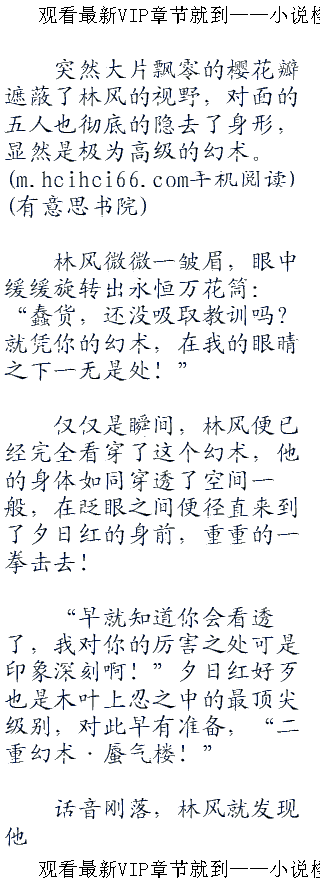 观看最新VIP章节就到——小说检
突然大片飘零的樱花瓣
遮蔽了林风的视野，对面的
五人也彻底的隐去了身形，
显然是极为高级的幻术。
(m.hcihci66.com手机阅读)
(有意思书院)
林风微微一皱眉，眼中
缓缓旋转出永恒万花筒：
“蠢货，还没吸取教训吗？
就凭你的幻术，在我的眼睛
之下一无是处！”
仅仅是瞬间，林风便已
经完全看穿了这个幻术，他
的身体如同穿透了空间一
般，在眨眼之间便径直来到
了夕日红的身前，重重的一
拳击去！
“早就知道你会看透
了，我对你的厉害之处可是
印象深刻啊！”夕日红好歹
也是木叶上忍之中的最顶尖
级别，对此早有准备，“二
重幻术·蜃气楼！”
话音刚落，林风就发现
他
观看最新VIP章节就到——小说检